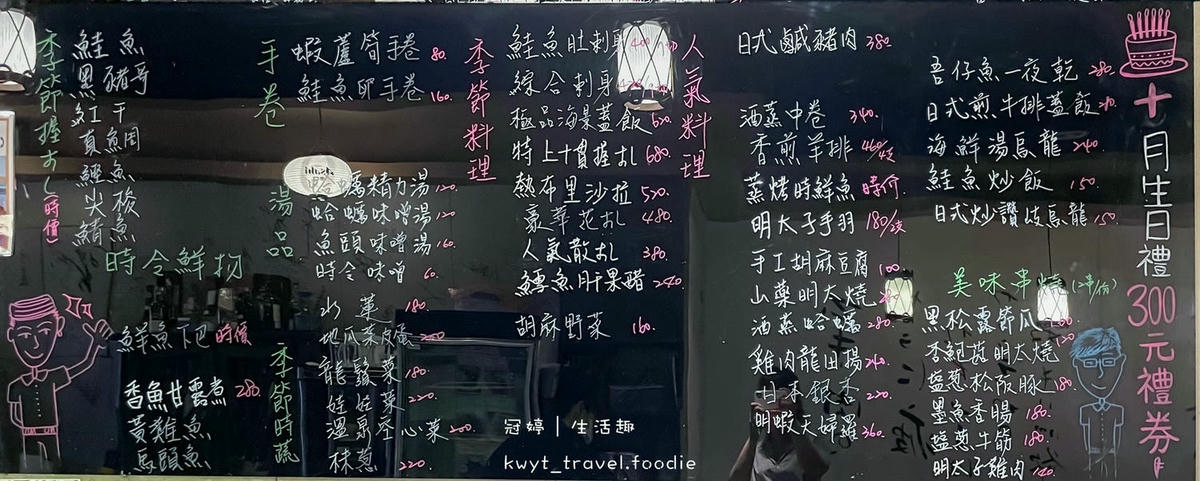 季節握すし(時價)
鮭魚
黑豬哥
紅干
真鯛
鰹魚
尖梭
鯖魚
時令鮮物
鮮魚下巴 時價
香魚甘露煮 280.
黃雞魚
馬頭魚
手卷
蝦蘆筍手卷 80.
鮭魚卵手卷 160.
湯品
蛤蠣精力湯 120.
蛤蠣味噌湯 120.
魚頭味噌湯 160.
時令味噌 60.
季節時蔬
水蓮 180.
地瓜菜皮蛋 200
龍鬚菜 180.
娃娃菜 220.
溫泉空心菜 200.
秣蔥 220.
季節料理
鮭魚肚刺身
綜合刺身
極品海景蓋飯 620.
特上十貫握すし 680.
熱布里沙拉 520.
豪華花すし 480.
人氣散すし 380.
鱈魚肝果醋 240.
胡麻野菜 160.
人氣料理
日式鹹豬肉 380.
酒蒸中卷 340.
香煎羊排 460/4支
蒸烤時鮮魚 時价
明太子手羽 180/2支
手工胡麻豆腐 100
山藥明太燒
酒蒸蛤蠣 280.
雞肉龍田揚 240.
日本銀杏 220.
明蝦天婦羅 360.
吾仔魚一夜乾 280.
日式煎牛排蓋飯
海鮮湯烏龍 240.
鮭魚炒飯 150.
日式炒讚岐烏龍 150.
美味串燒(2串/份)
黑松露節瓜
杏鮑菇明太燒 120
塩蔥松阪豚 180.
墨魚香腸 180.
塩蔥牛筋 180.
明太子雞肉 140.
十月生日禮300元禮券
冠婷｜生活趣
kwyt_travel.foodie